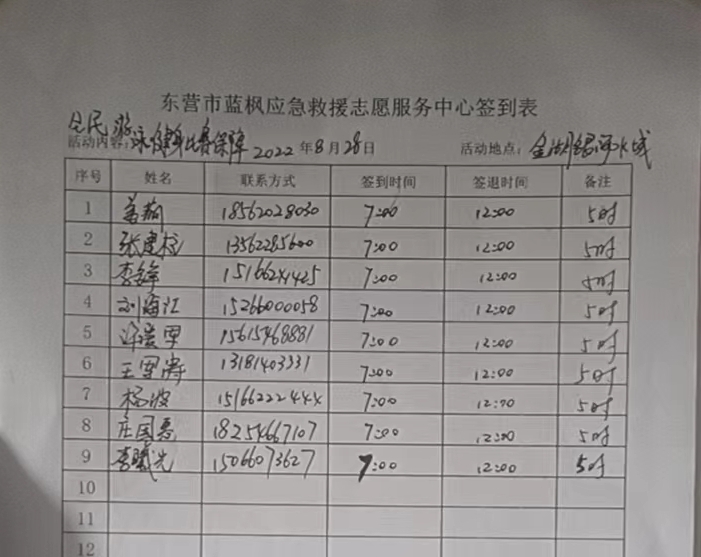 东营市蓝枫应急救援志愿服务中心签到表
全民游
活动内容:泳健身比赛保障 2022年8月28日 活动地点:金湖银河水域
序号 姓名 联系方式 签到时间 签退时间 备注
1 18562028030 7:00 12:00 5时
2 张建 13562285600 7:00 12:00 5时
3 李锋 15166241425 7:00 12:00 5时
4 刘海江 15266000058 7:00 12:00 5时
5 15615468881 7:00 12:00 5时
6 王军涛 13181403331 7:00 12:00 5时
7 杨波 15166222444 7:00 12:00 5时
8 庄国 18254667107 7:00 12:00 5时
9 李曦光 15066073627 7:00 12:00 5时
10
11
12